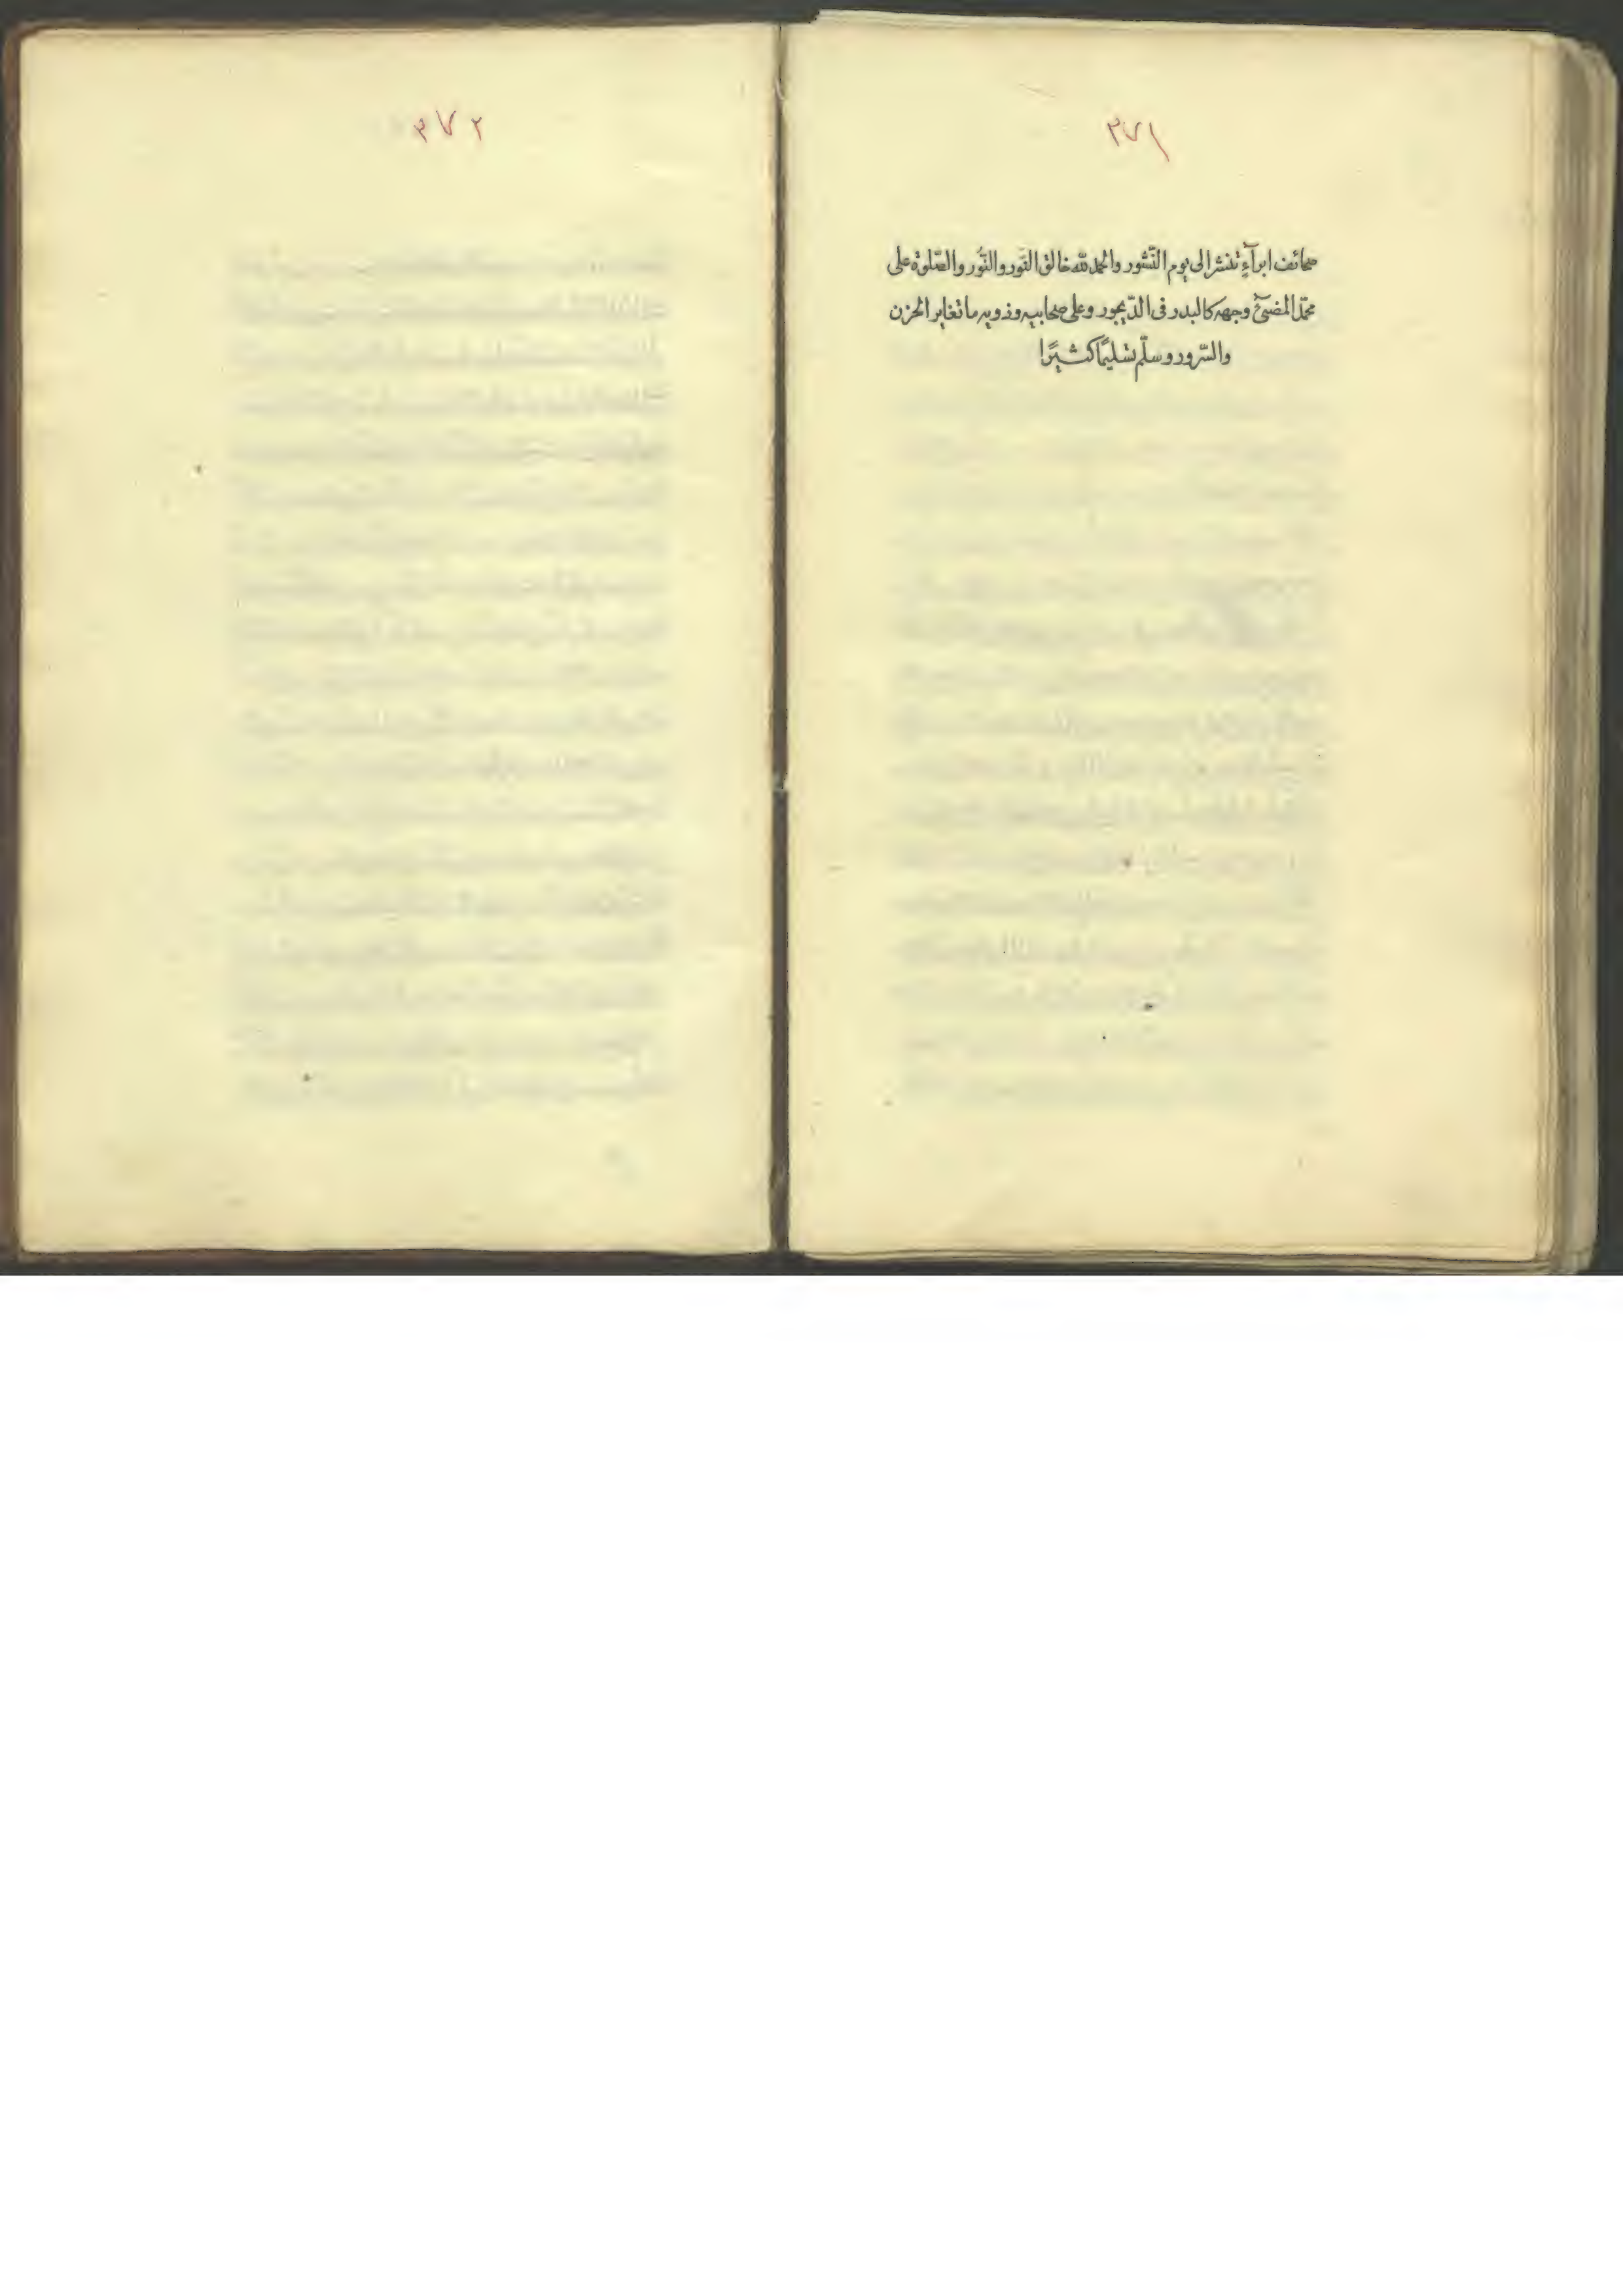 ٣٧١
صحائف ابرآءٍ تنشر الى يوم النّشور والحمد لله خالق النَور والنُّور والصّلوة على
محمّد المضیٓئ وجهه كالبدر فى الدّيجور وعلى صحابيه وذويه ما تغاير الحزن
والسّرور وسلّم تسليمًا كثيرًا
٣٧٢